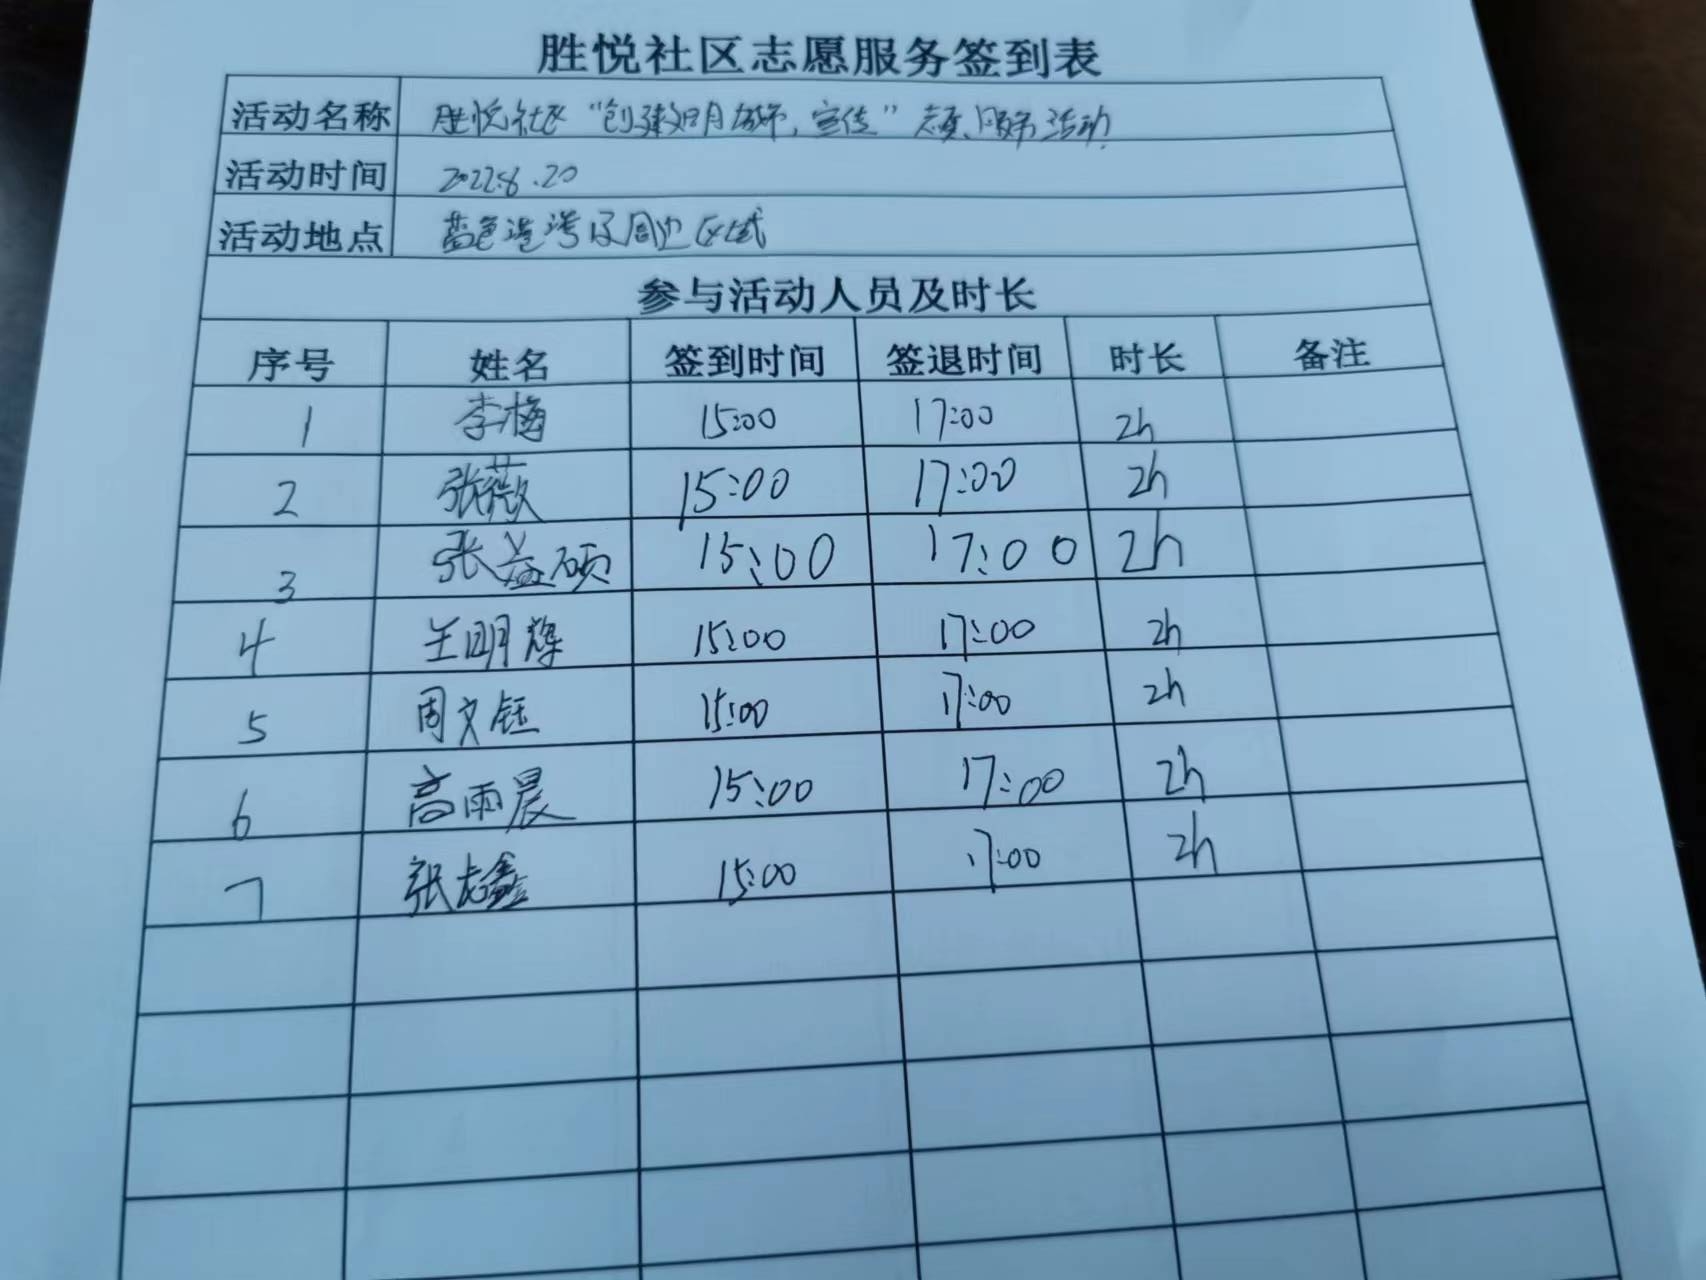 胜悦社区志愿服务签到表
活动名称 胜悦社区“创建文明城市,宣传”志愿服务活动
活动时间 2022.8.20
活动地点 蓝色港湾及周边区域
参与活动人员及时长
序号 姓名 签到时间 签退时间 时长 备注
1 李梅 15:00 17:00 2h
2 张薇 15:00 17:00 2h
3 张益硕 15:00 17:00 2h
4 王明辉 15:00 17:00 2h
5 周文钰 15:00 17:00 2h
6 高雨晨 15:00 17:00 2h
7 张志鑫 15:00 17:00 2h